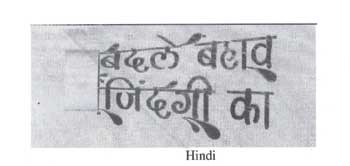 बदलें बहाव
ज़िंदगी का
Hindi